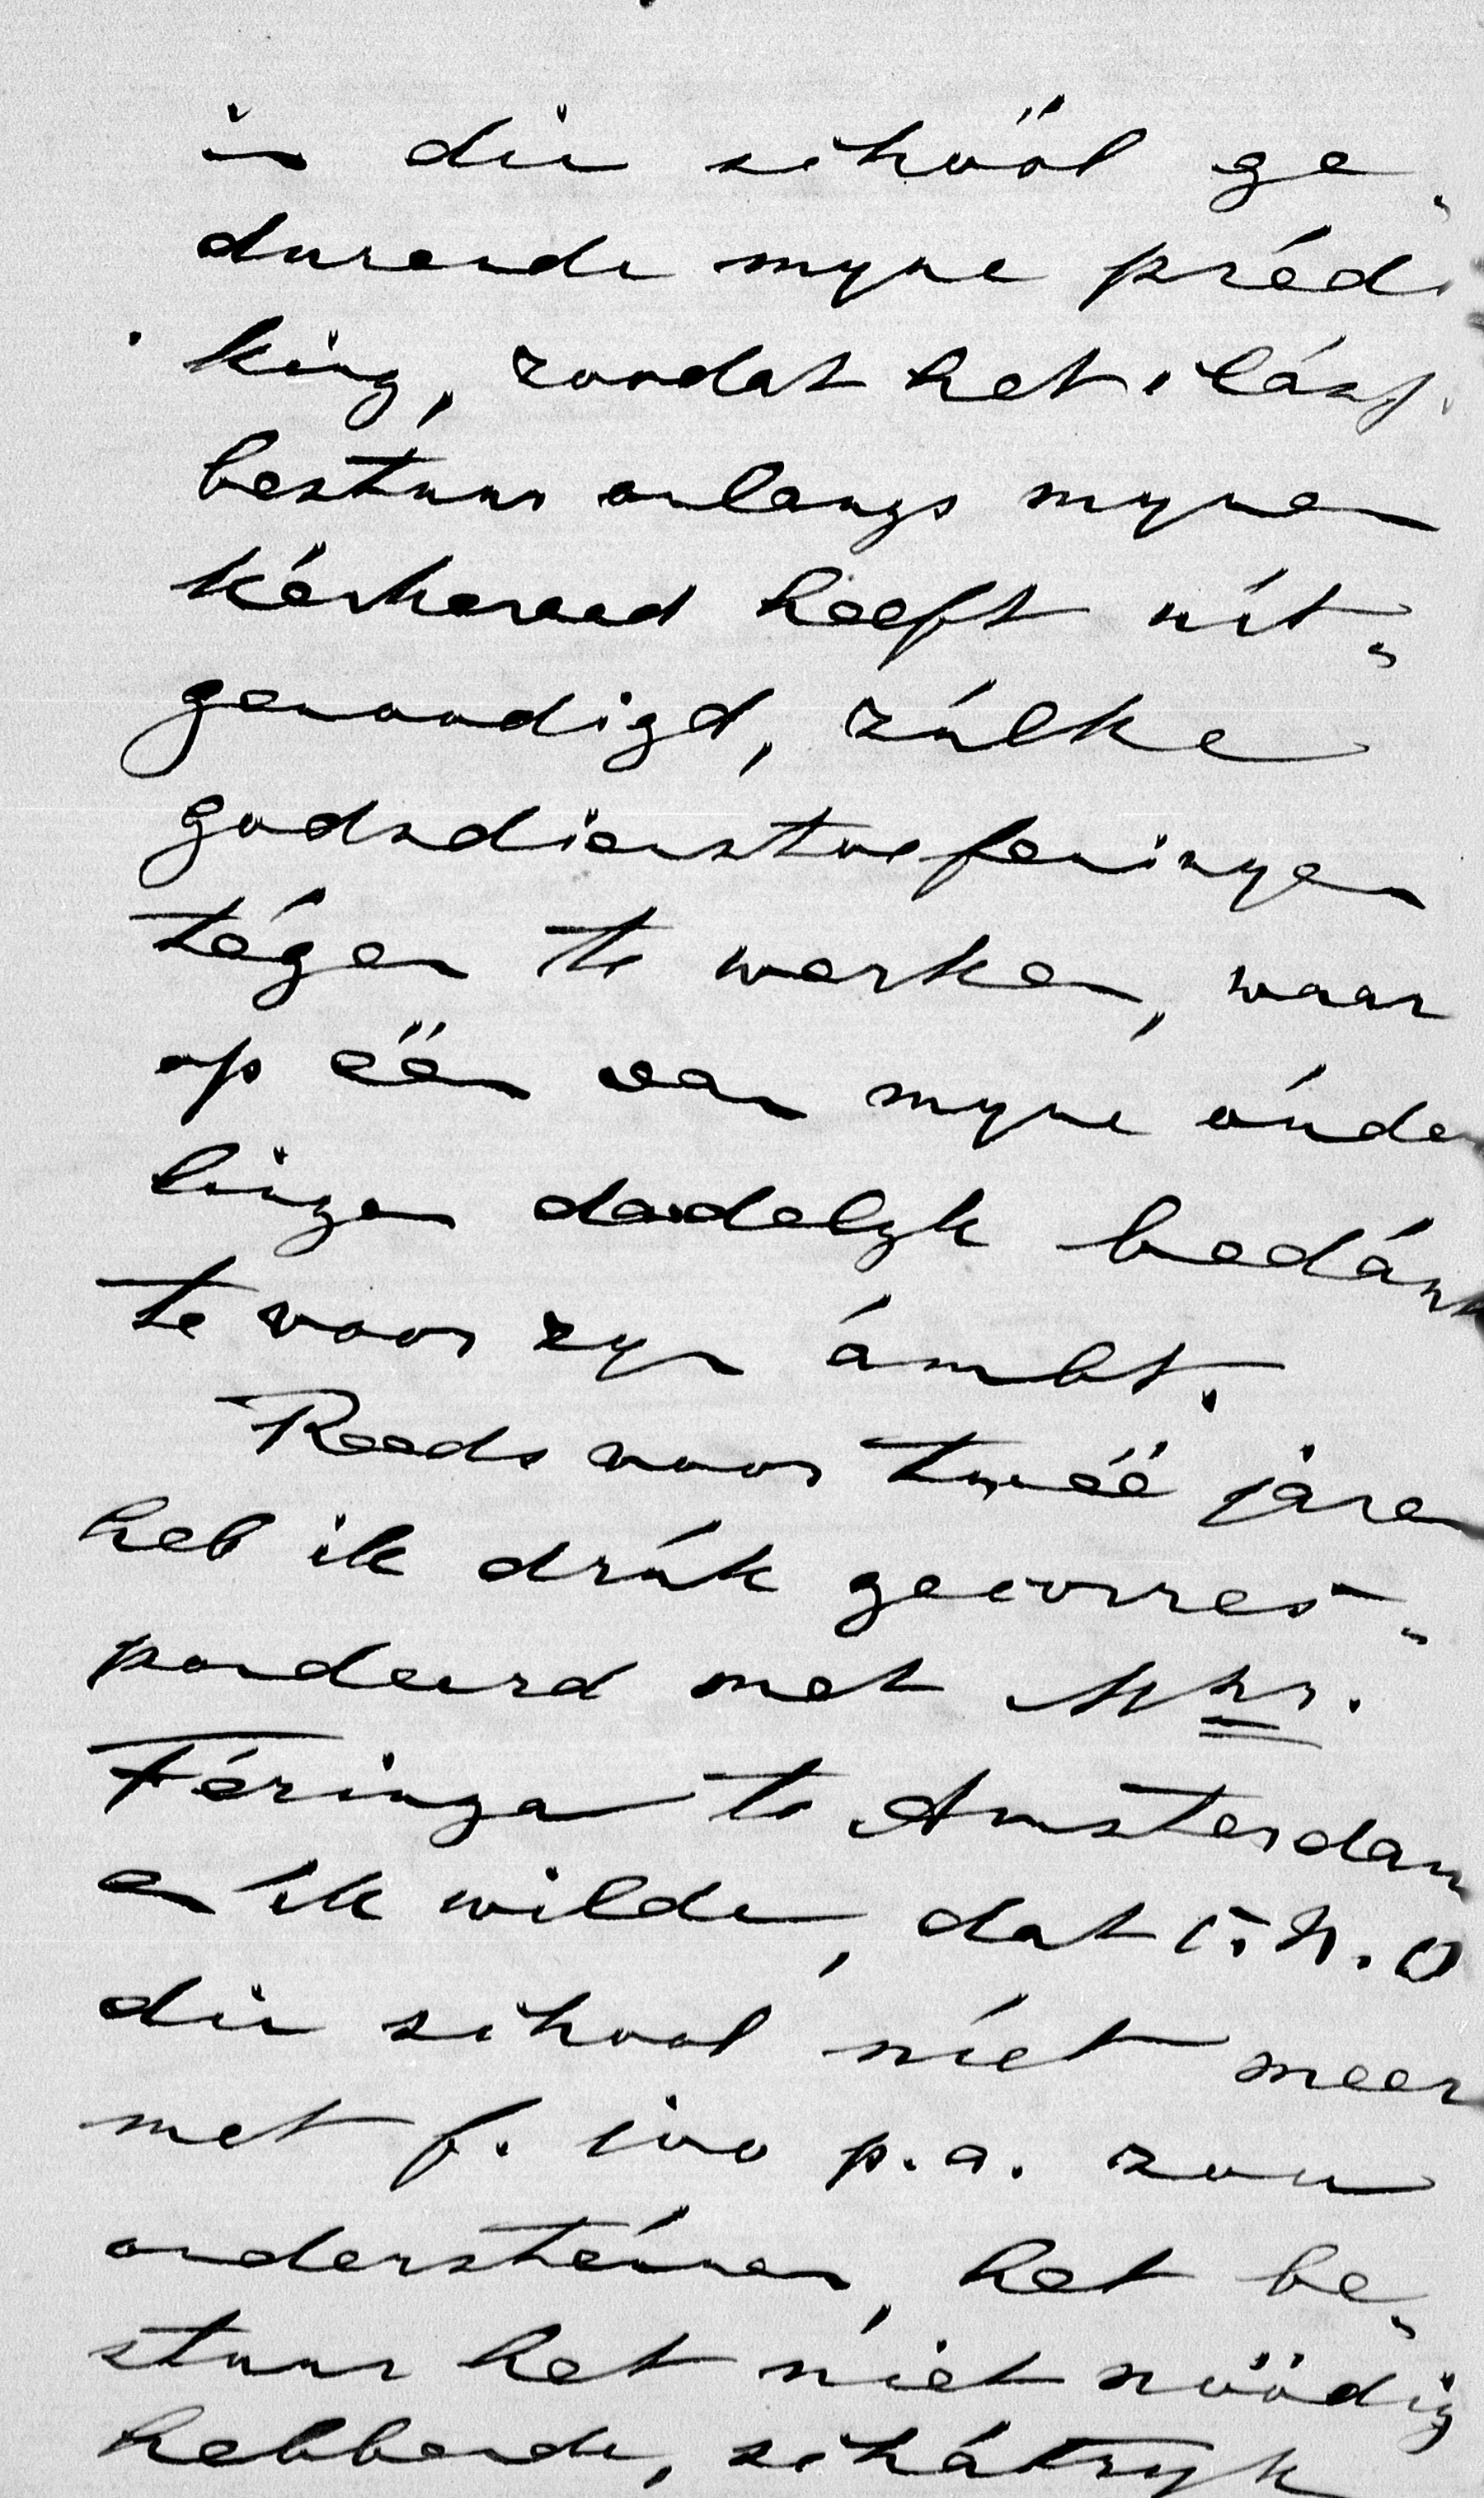 in die schöól ge„
durende myne prédi
king, zoodat het
bestuur onlangs mynen
kérkeraad heeft uít„
genoodigd, zúlke
godsdienstoefeningen
tégen te werken, waar
op één van myne óúder
lingen dadelyk bedánk
te voor zyn ámbt.
Reeds voor twéé jaren
heb ik drúk gecorres„
pondeerd met Mhr.
Féringa te Amsterdam
en ik wilde, dat C.N.O
die school níet meer
met f. 100 p.a. zou
ondersteúnen, het be„
stuur het niet nöódig
hebbende, schátryk